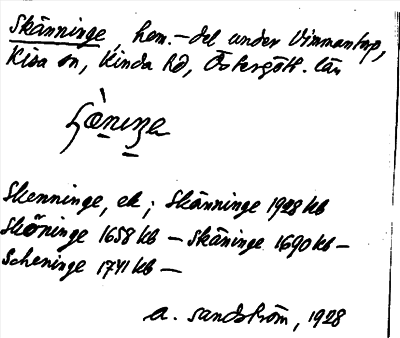 Skänninge, hem.-del under Vimmantorp,
Kisa sn, Kinda hd, Östergötl. län
Skenninge, ek; Skänninge 1928 kb
Sköninge 1658 kb — Skäninge 1690 kb —
Scheninge 1741 kb —
A. Sandström, 1928